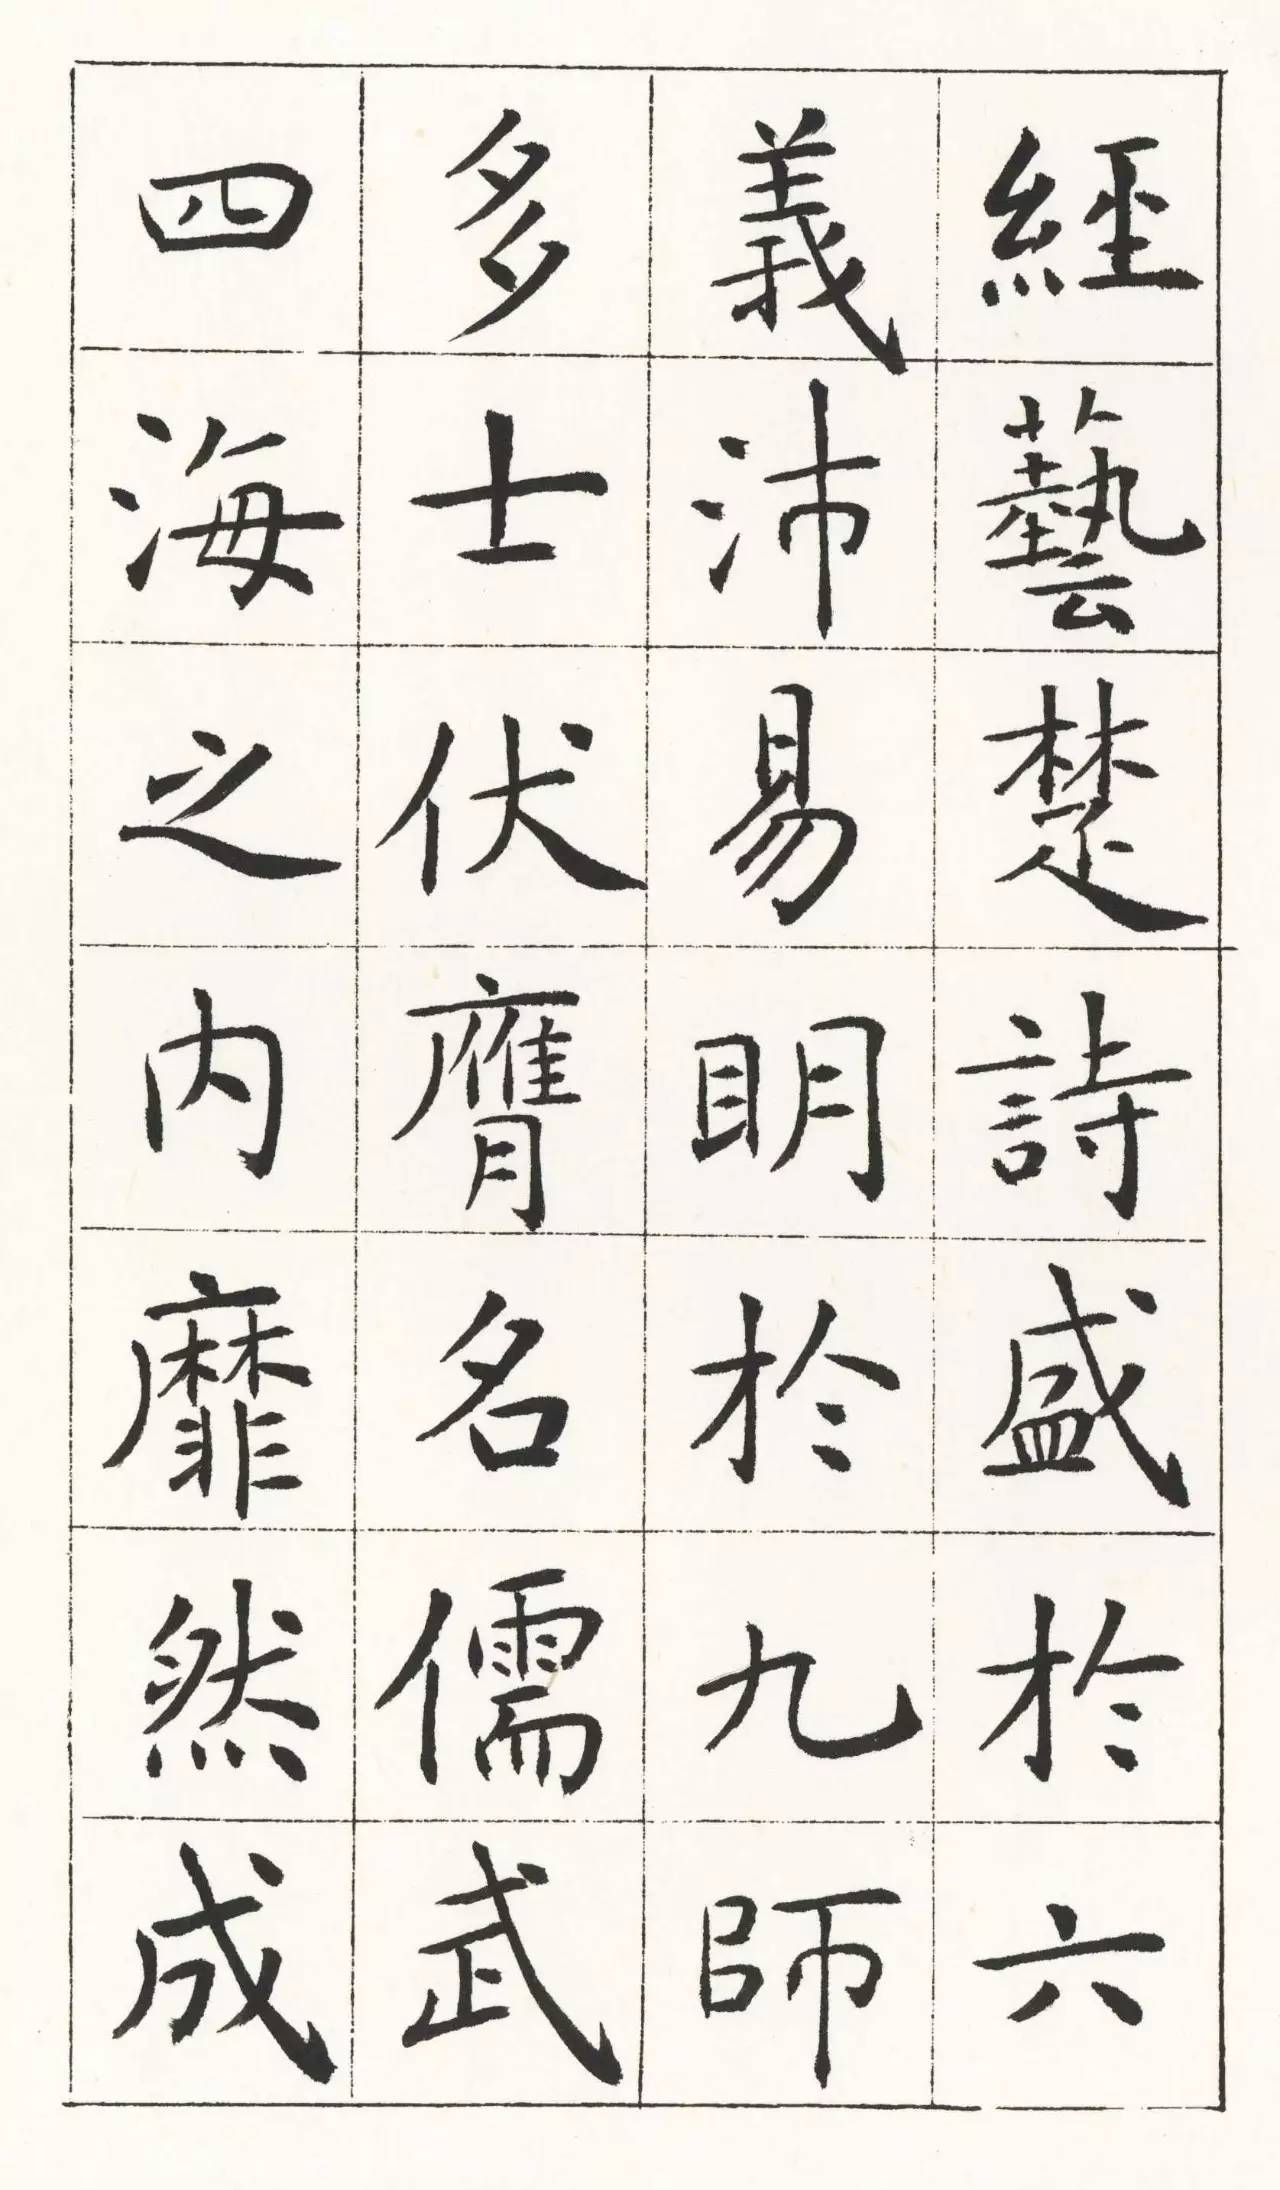 經藝楚詩盛於六
義沛易明於九師
多士伏膺名儒武
四海之内靡然成